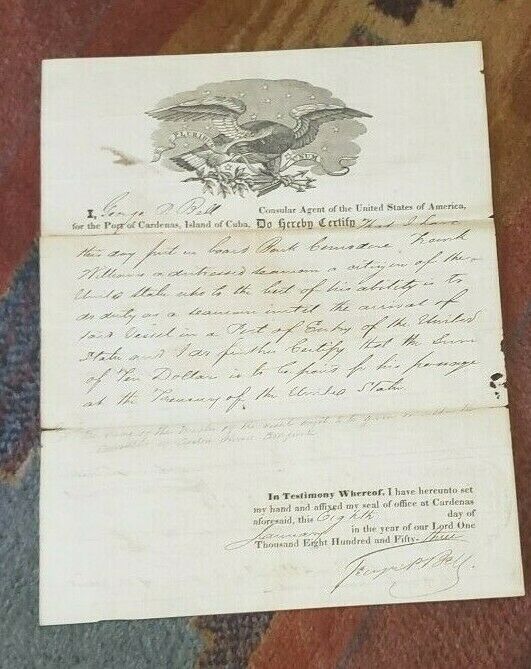 PLURIBUS UNUM
I, George P Bell Consular Agent of the United States of America,
for the Port of Cardenas, Island of Cuba, Do Hereby Certify that I have
this day put on board Bark Frank
Williams a distressed seaman a citizen of the
United States who to the best of his ability is to
do duty as a seaman until the arrival of
said Vessel in a Port of Entry of the United
States and I do further Certify that the Sum
of Ten Dollars is to be paid for his passage
at the Treasury of the United States
the of the of the
In Testimony Whereof, I have hereunto set
my hand and affixed my seal of office at Cardenas
aforesaid, this Eighth day of
January in the year of our Lord One
Thousand Eight Hundred and Fifty-three
George P Bell.